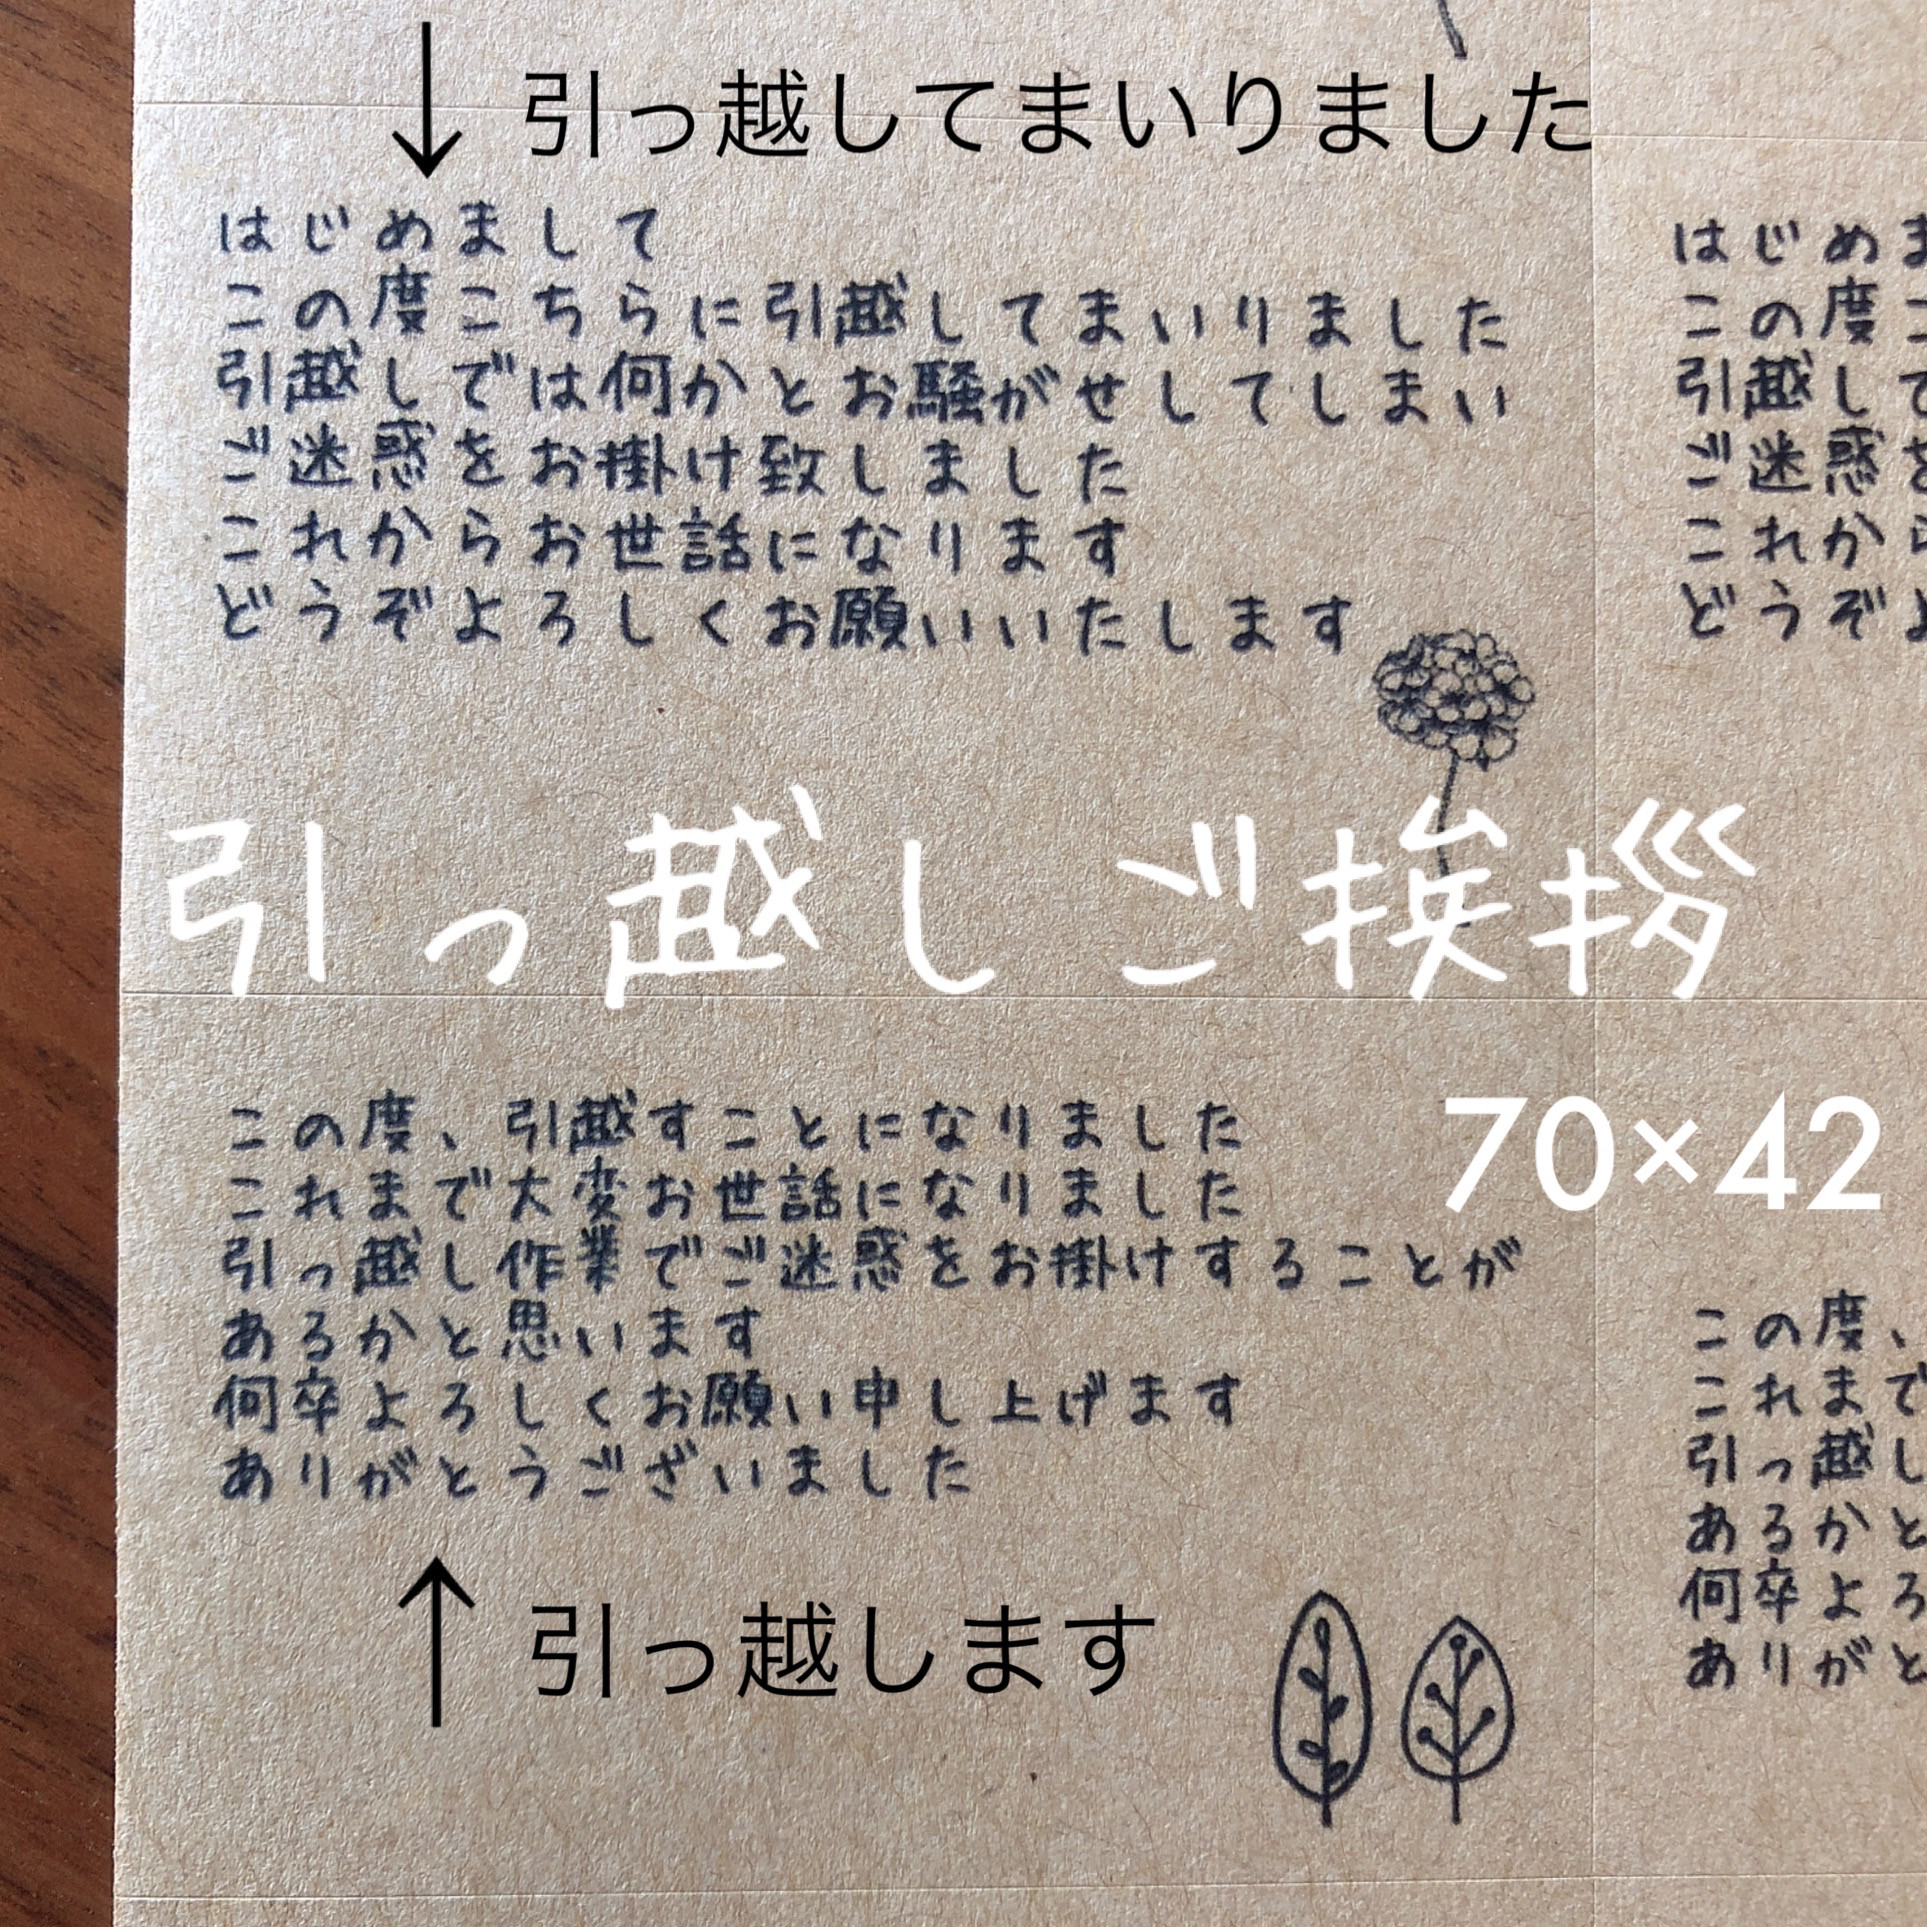 引っ越してまいりました
はじめまして
この度こちらに引越してまいりました
引越しでは何かとお騒がせしてしまい
ご迷惑をお掛け致しました
これからお世話になります
どうぞよろしくお願いいたします
はじめま
この度こ
引越して
ご迷惑を
これから
どうぞよ
引っ越しご挨拶
70×42
この度、引越すことになりました
これまで大変お世話になりました
引っ越し作業でご迷惑をお掛けすることが
あるかと思います
何卒よろしくお願い申し上げます
ありがとうございました
この度、
これまで
引っ越し
あるかと
何卒よろ
ありがと
引っ越します